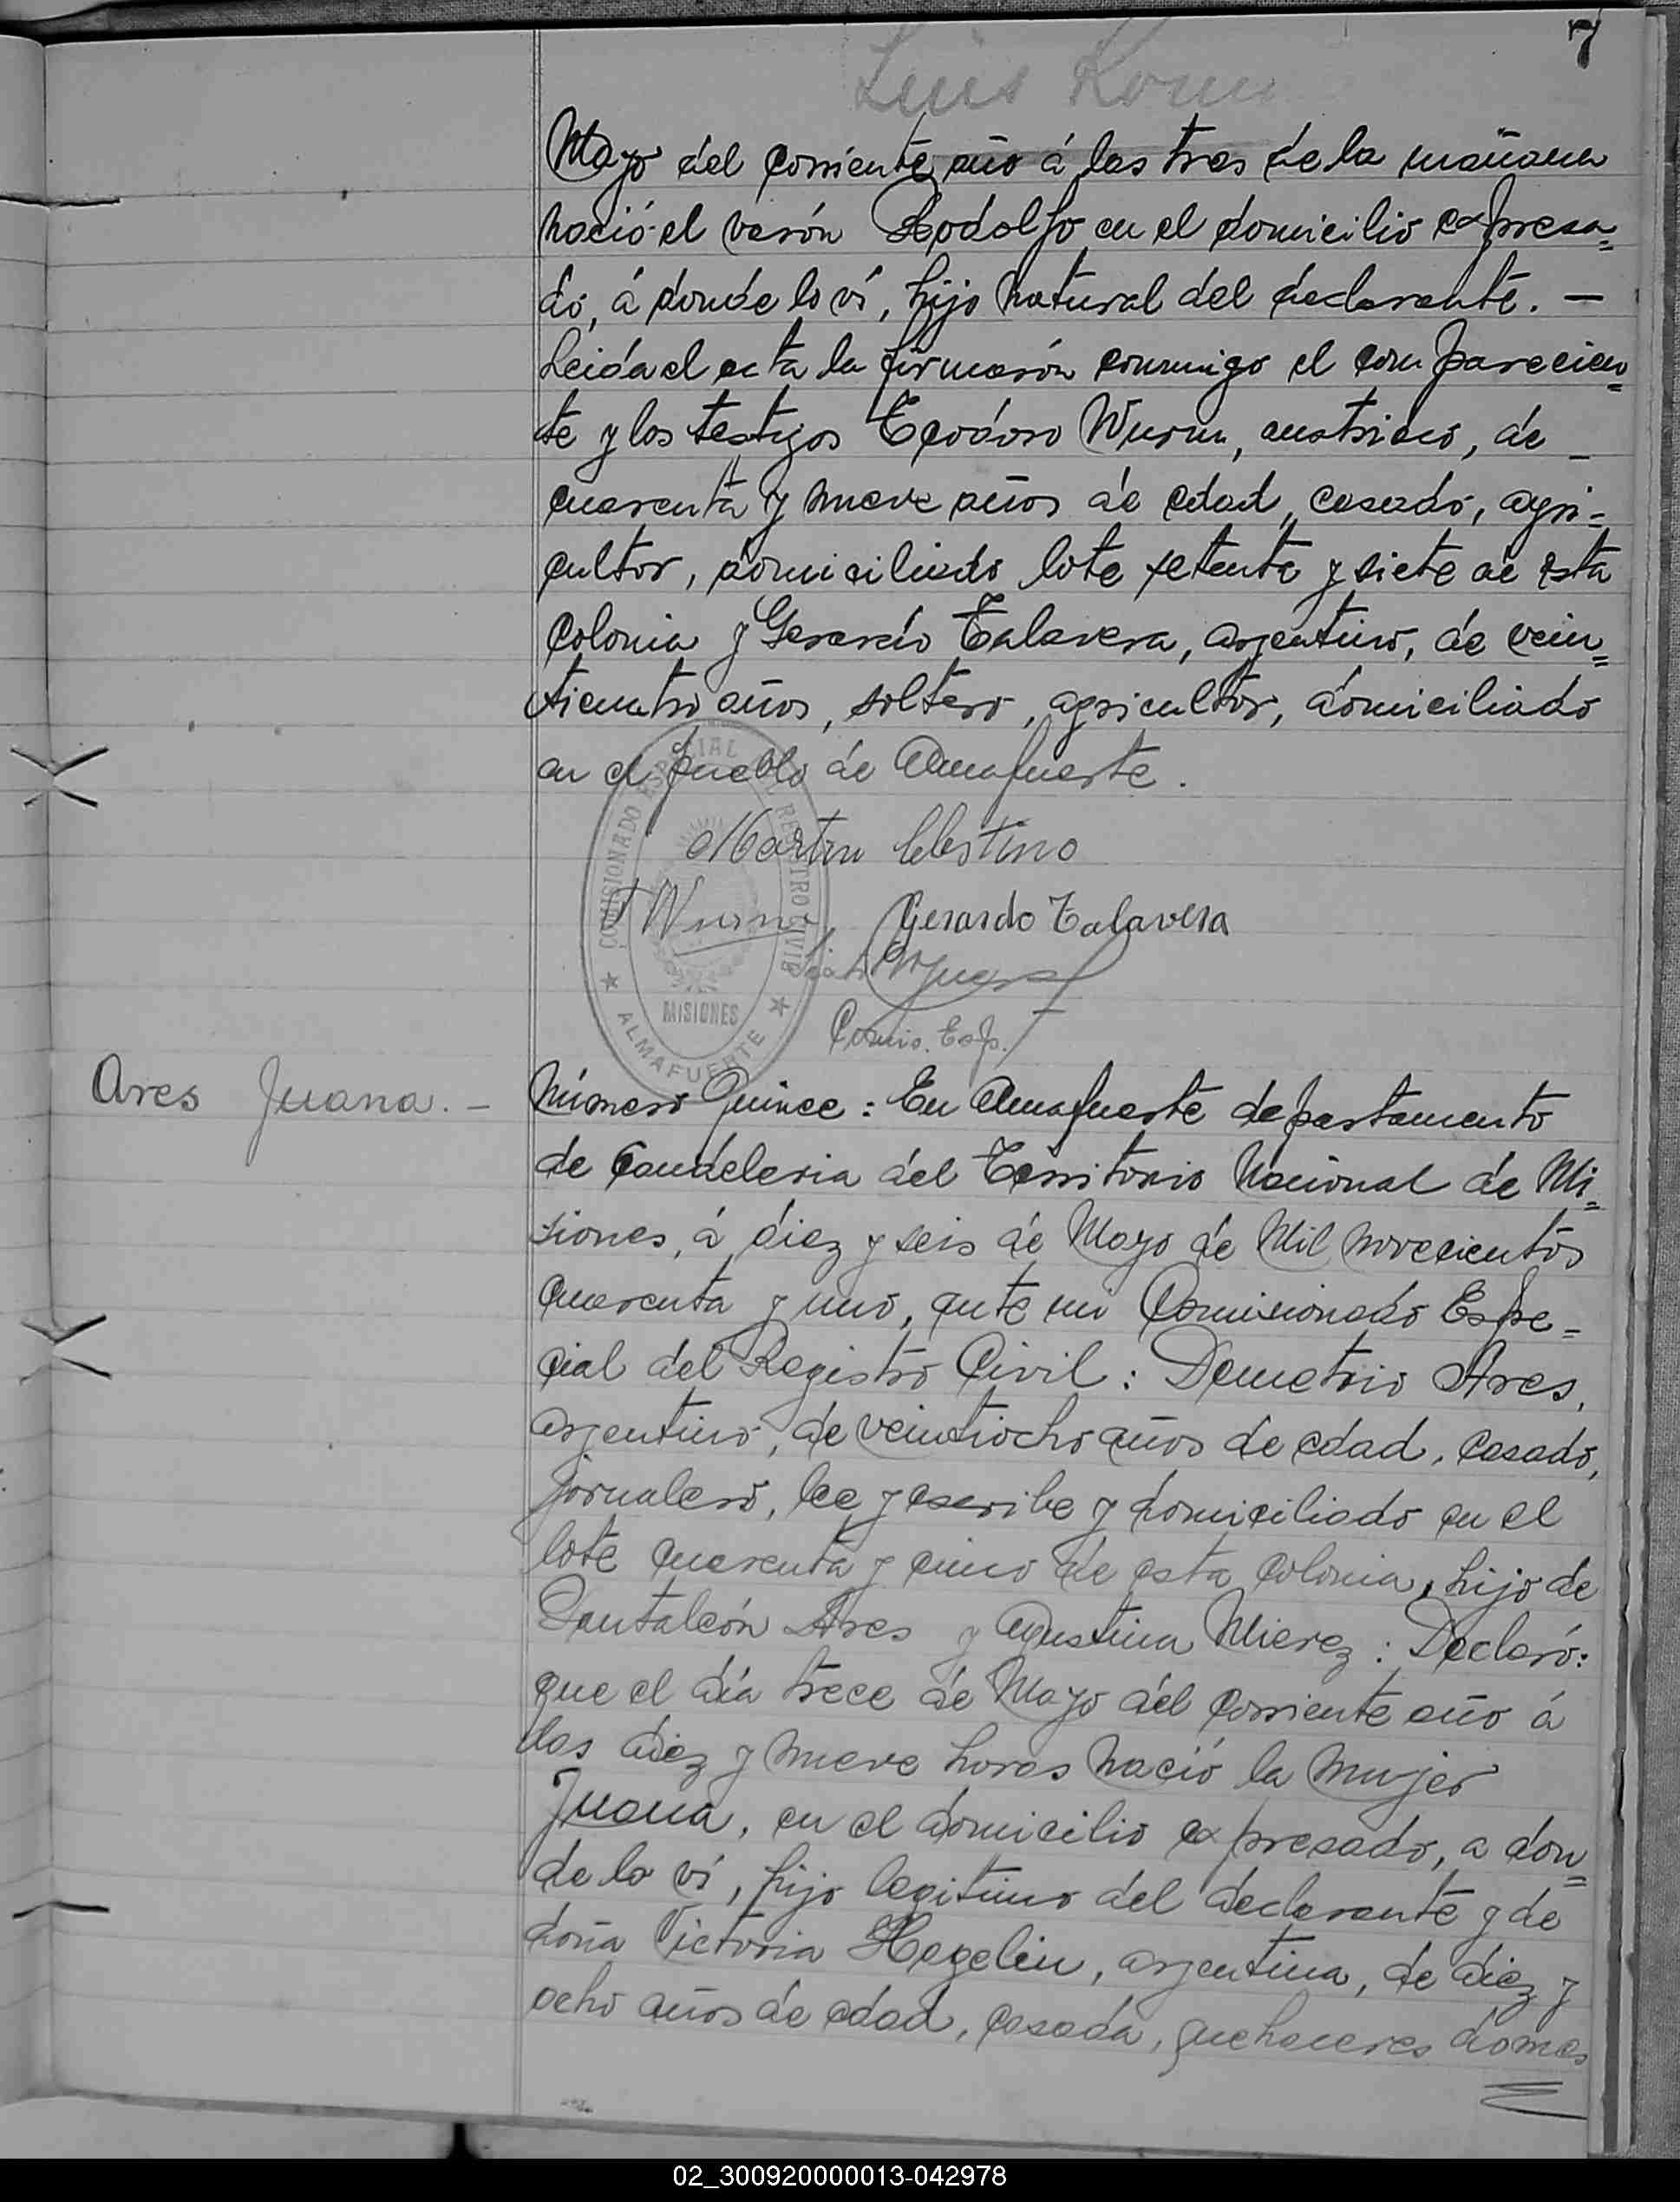 7
Luis
Mayo del corriente año á las tres de la mañana
nació el varón Rodolfo en el domicilio expresa=
do, á donde lo ví, hijo natural del declarante. —
Leida el acta la firmarón conmigo el comparecien=
te y los testigos Teodoro Wurm, austriaco, de _
cuarenta y nueve años de edad, casado, agri=
cultor, domiciliado lote setenta y siete de esta
Colonia y Gerardo Talavera, argentino, de vein=
ticuatro años, soltero, agricultor, domiciliado
en el pueblo de Almafuerte.
Martin Celestino
T Wurm Gerardo Talavera
Comis. Esp.
COMISIONADO ESPECIAL DEL REGISTRO CIVIL
MISIONES
ALMAFUERTE
Ares Juana. —
Número Quince: En Almafuerte departamento
de Candelaria del Territorio Nacional de Mi=
siones, á diez y seis de Mayo de Mil novecientos
cuarenta y uno, ante mi Comisionado Espe=
cial del Registro Civil: Demetrio Ares,
argentino, de veintiocho años de edad, casado,
jornalero, lee y escribe y domiciliado en el
lote cuarenta y cinco de esta colonia, hijo de
Pantaleón Ares y Agustina Mierez: Declaró:
que el día trece de Mayo del corriente año á
las diez y nueve horas nació la mujer
Juana, en el domicilio expresado, a don=
de lo ví, hijo legitimo del declarante y de
doña Victoria Hegelin, argentina, de diez y
ocho años de edad, casada, quehaceres domes
02_300920000013-042978